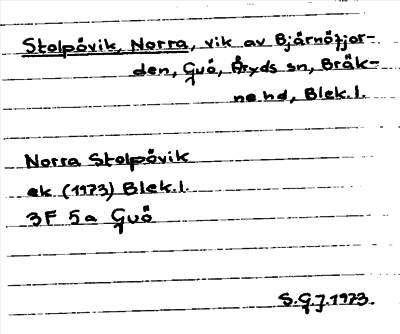 Stolpövik, Norra, vik av Bjärnöfjor-
den, Guö, Åryds sn, Bräk-
ne hd, Blek.l.
Norra Stolpövik
ek (1973) Blek.l.
3F 5a Guö
S.G.J. 1973.